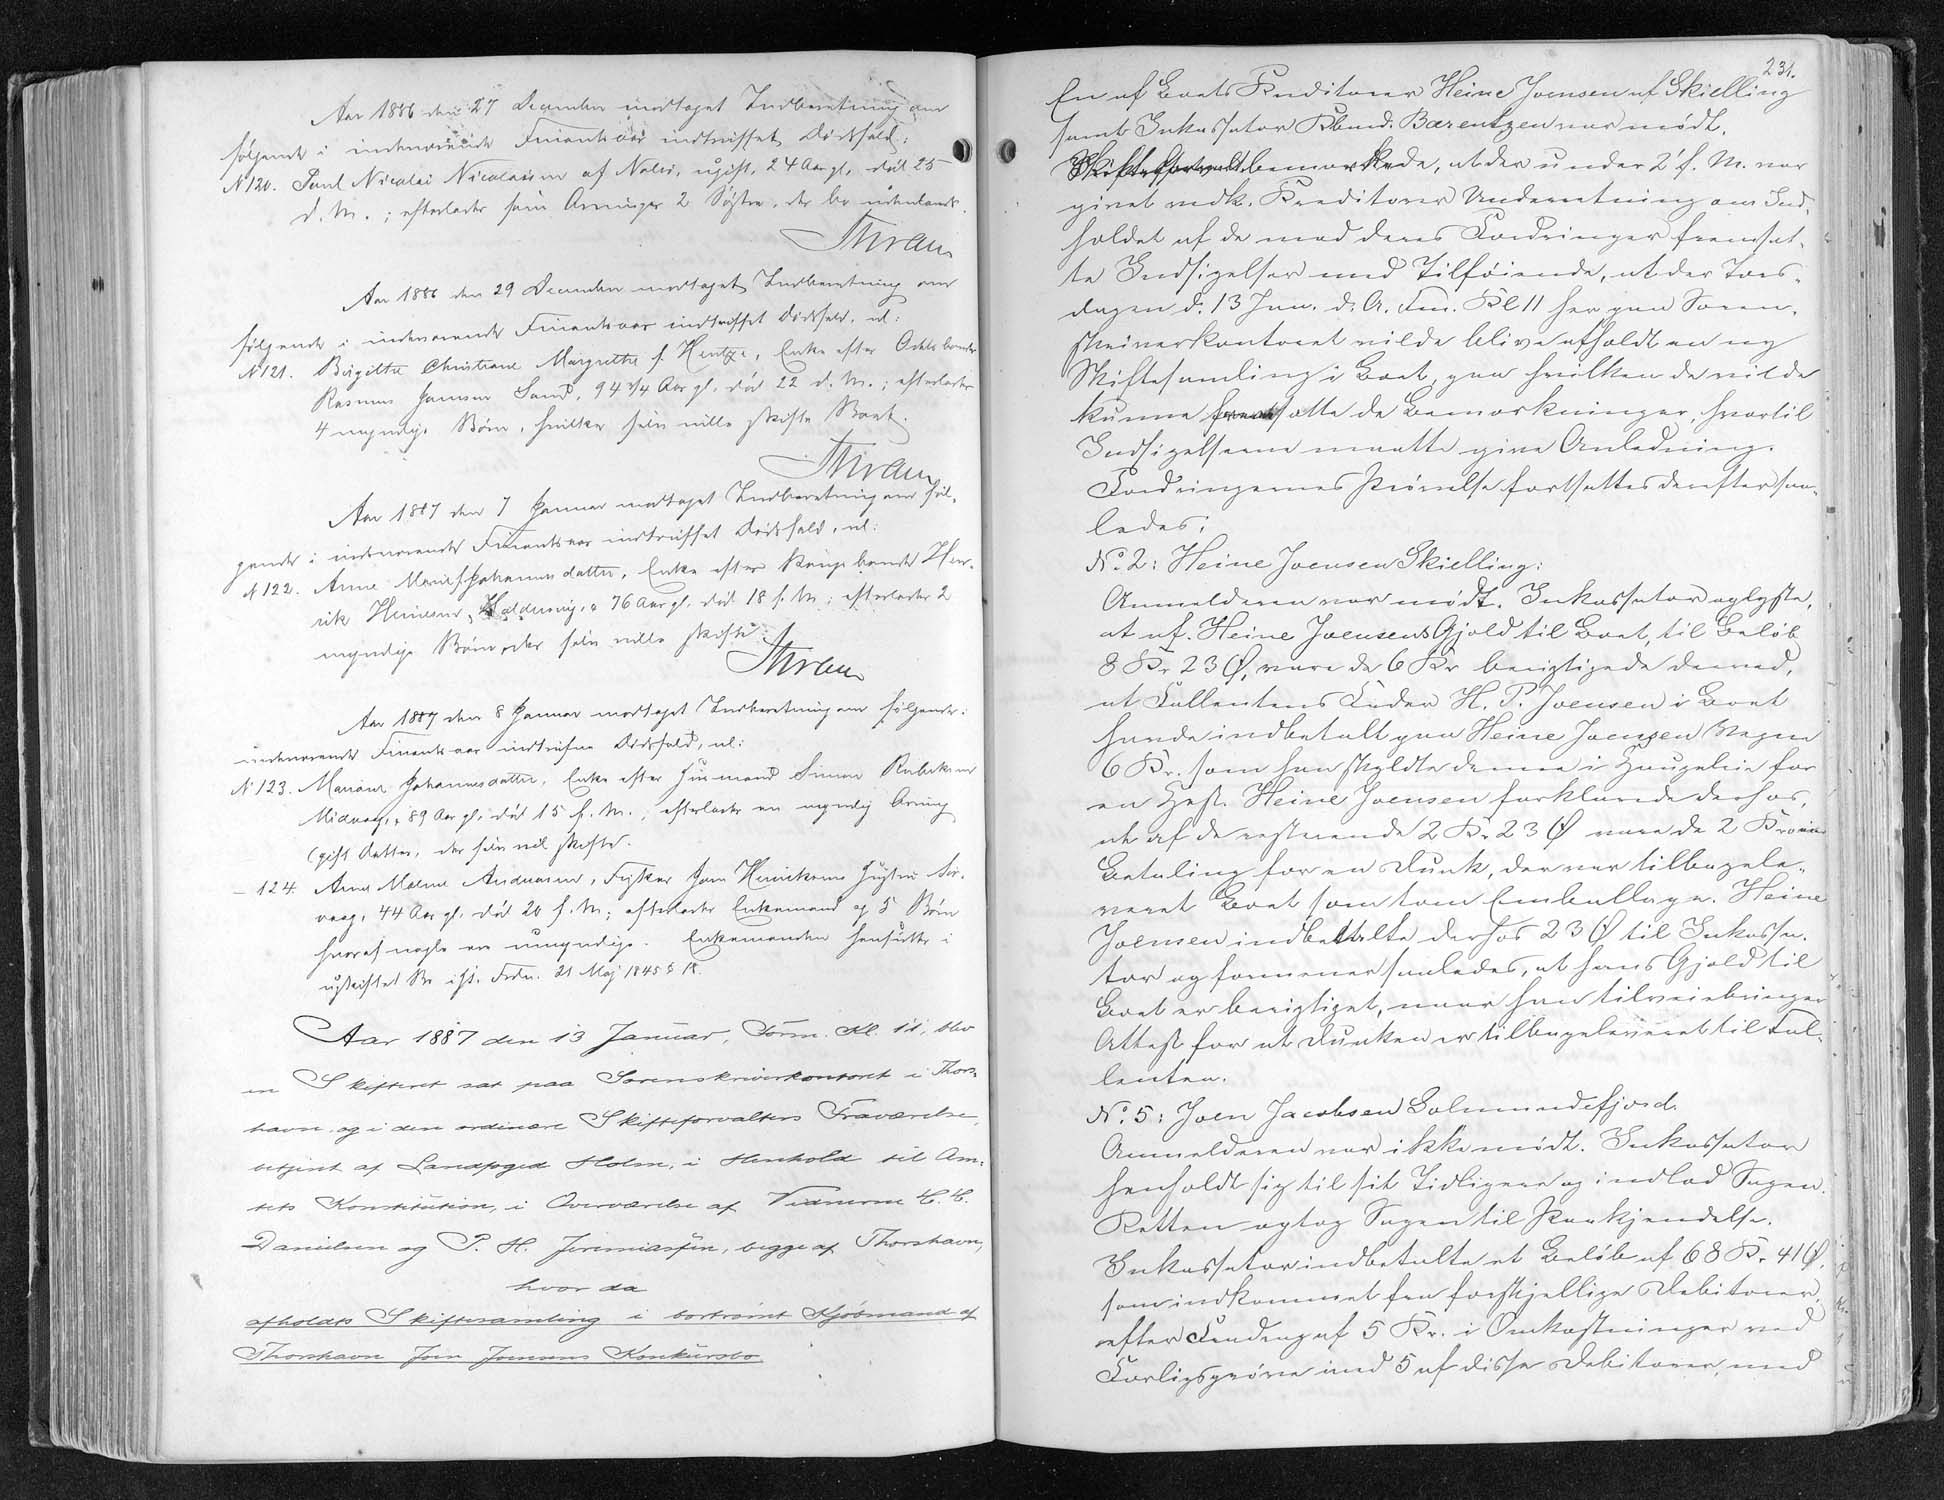 Aar 1886 den 27 December modtaget Indberetning om
følgende i indeværende Finantsaar indtruffet Dødsfald:
N 120. Poul Nicolai Nicolaisen af Nolsø, ugift, 24 Aar gl. død 25
d. M.; efterlader som Arvinger 2 Søstre, der bo udenlands.
Aar 1886 den 29 December modtaget Indberetning om
følgende i indeværende Finantsaar indtruffet Dødsfald, nl:
N 121. Birgitte Christiane Margrethe f. Hentze, Enke efter Odelsbonde
Rasmus Jensen Sand, 94 3/4 Aar gl. død 22 d. M.; efterlader
4 myndige Børn, hvilke selv ville skifte Boet.
Aar 1887 den 7 Januar modtaget Indberetning om føl-
gende i indeværende Finantsaar indtruffet Dødsfald, nl:
N 122. Anne Marie Johannesdatter, Enke efter Kongsbonde Hen-
rik Heinesen, Haldersvig, 76 Aar gl. død 18 f. M.; efterlader 2
myndige Børn, der selv ville skifte.
Aar 1887 den 8 Januar modtaget Indberetning om følgende i
indeværende Finantsaar indtrufne Dødsfald, nl:
N 123. Mariane Johannesdatter, Enke efter Huusmand Simon Rubeksen
Midvaag, 89 Aar gl. død 15 f. M., efterlader en myndig Arving
(gift Datter, der selv vil skifte.
- 124. Anne Malene Andreasen, Fisker Joen Henriksens Hustru Sør-
vaag, 44 Aar gl. død 20 f. M; efterlader Enkemand og 5 Børn
hvoraf nogle ere umyndige. Enkemanden hensidder i
uskiftet Bo iflt. Frdn. 21 Maj 1845 § 18.
Aar 1887 den 13 Januar, Form. Kl. 11, blev
en Skifteret sat paa Sorenskriverkontoret i Thors-
havn og i den ordinære Skifteforvalters Fraværelse,
betjent af Landfoged Holm, i Henhold til Am-
tets Konstitution, i Overværelse af Vidnerne H. H.
Danielsen og P. H. Jeremiassen, begge af Thorshavn,
hvor da
afholdtes Skiftesamling i bortrømt Kjøbmand af
Thorshavn Joen Joensens Konkursbo.
231.
En af Boets Kreditorer Heine Joensen af Skielling
samt Inkassator Rbmd. Bærentzen var mødt.
Skifteforvalt. bemærkede, at der under 2 f. M. var
givet vedk. Kreditorer Underretning om Ind-
holdet af de mod deres Fordringer fremsat-
te Indsigelser med Tilføiende, at der Tors-
dagen d. 13 Jan. d. A. Fm. Kl 11 her paa Soren-
skriverkontoret vilde blive afholdt en ny
Skiftesamling i Boet, paa hvilken de vilde
kunne fremsætte de Bemærkninger, hvortil
Indsigelserne maatte give Anledning.
Fordringernes Prøvelse fortsattes derefter saa-
ledes:
No. 2: Heine Joensen Skielling:
Anmelderen var mødt. Inkassator oplyste,
at af Heine Joensens Gjæld til Boet, til Beløb
8 Kr 23 Ø, vare de 6 Kr berigtigede derved,
at Fallentens Fader H. P. Joensen i Boet
havde indbetalt paa Heine Joensen Vegne
6 Kr. som han skyldte denne i Haugeleie for
en Hest. Heine Joensen forklarede derhos,
at af de resterende 2 Kr 23 Ø vare de 2 Kroner
Betaling for en Dunk, der var tilbagele-
veret Boet som tom Emballage. Heine
Joensen indbetalte derhos 23 Ø til Inkassa-
tor og formener saaledes, at hans Gjæld til
Boet er berigtiget, naar han tilveiebringer
Attest for at Dunken er tilbageleveret til Fal-
lenten.
No. 5: Joen Jacobsen Kolmundefjord.
Anmelderen var ikke mødt. Inkassator
henholdt sig til sit Tidligere og indlod Sagen.
Retten optog Sagen til Paakjendelse.
Inkassator indbetalte et Beløb af 68 Kr. 41 Ø,
som indkommet fra forskjellige Debitorer,
efter Fradrag af 5 Kr. i Omkostninger ved
Forligsprøve med 5 af disse Debitorer, med